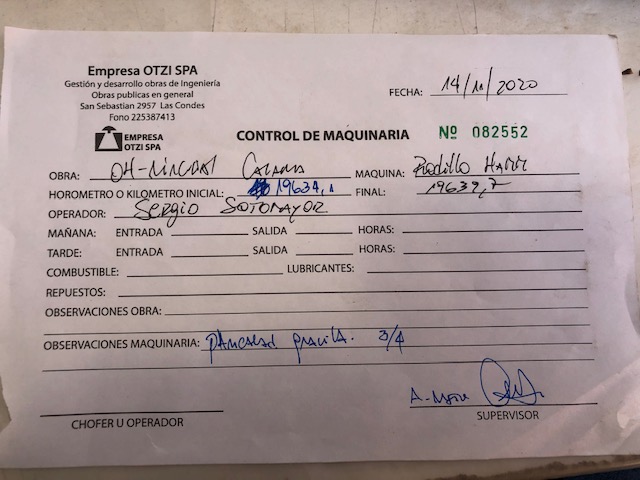 Empresa OTZI SPA
Gestión y desarrollo obras de Ingeniería
Obras publicas en general
San Sebastian 2957 Las Condes
Fono 225387413
FECHA: 14/11/2020
EMPRESA
OTZI SPA
CONTROL DE MAQUINARIA Nº 082552
OBRA: MAQUINA: Rodillo
HOROMETRO O KILOMETRO INICIAL: 19634,1 FINAL: 19639,7
OPERADOR: Sergio SOTOMAYOR
MAÑANA: ENTRADA SALIDA HORAS:
TARDE: ENTRADA SALIDA HORAS:
COMBUSTIBLE: LUBRICANTES:
REPUESTOS:
OBSERVACIONES OBRA:
OBSERVACIONES MAQUINARIA: gravilla. 3/4
CHOFER U OPERADOR
SUPERVISOR